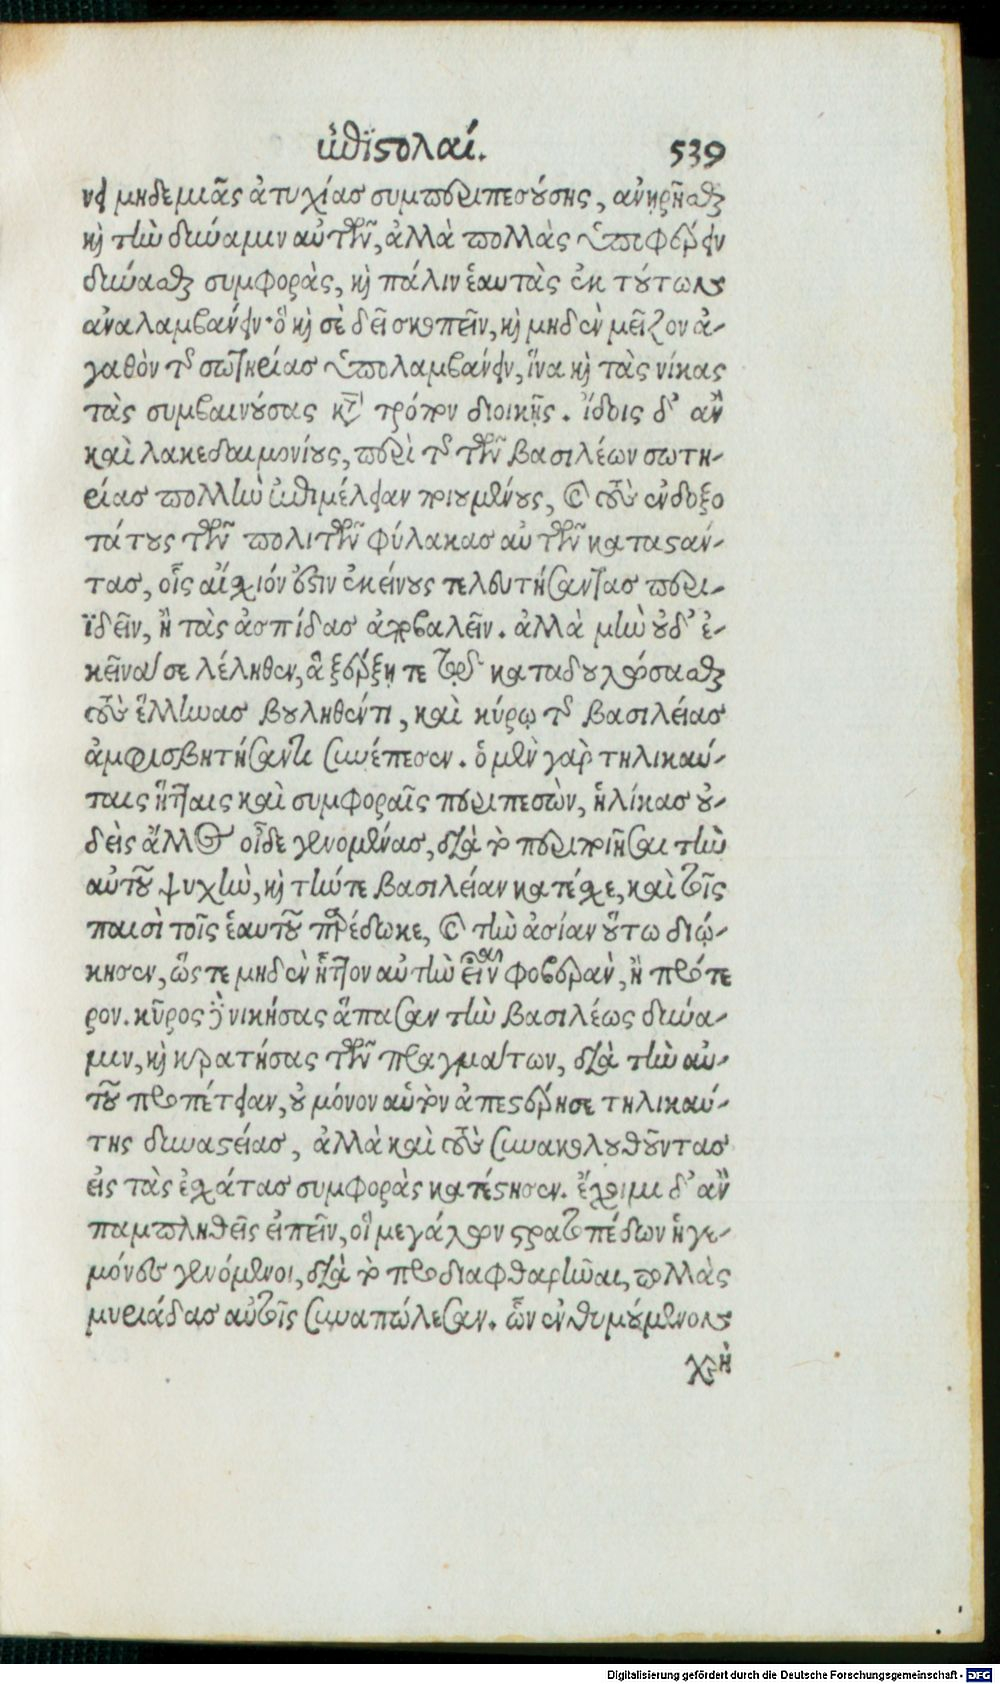 ἐπιστολαί. 539
νει μηδεμιᾶς ἀτυχίας συμπεριπεσούσης, ἀνῃρῆσθαι
καὶ τὴν δύναμιν αὐτῶν, ἀλλὰ πολλὰς ὑπενεγκεῖν
δύνασθαι συμφορὰς, καὶ πάλιν ἑαυτὰς ἐκ τούτων
ἀναλαμβάνειν· ὃ καὶ σὲ δεῖ σκοπεῖν, καὶ μηδὲν μεῖζον ἀ-
γαθὸν τῆς σωτηρίας ὑπολαμβάνειν, ἵνα καὶ τὰς νίκας
τὰς συμβαινούσας κατὰ τρόπον διοικῇς. ἴδοις δ' ἂν
καὶ λακεδαιμονίους, περὶ τῆς τῶν βασιλέων σωτη-
ρίας πολλὴν ἐπιμέλειαν ποιουμένους, καὶ τοὺς ἐνδοξο
τάτους τῶν πολιτῶν φύλακας αὐτῶν καταστάν-
τας, οἷς αἴσχιόν ἐστιν ἐκείνους τελευτήσαντας περι-
ϊδεῖν, ἢ τὰς ἀσπίδας ἀποβαλεῖν. ἀλλὰ μὴν οὐδ' ἐ-
κεῖνά σε λέληθεν, ἃ ξέρξῃ τε τῷ καταδουλώσασθαι
τοὺς ἕλληνας βουληθέντι, καὶ κύρῳ τῆς βασιλείας
ἀμφισβητήσαντι συνέπεσεν. ὁ μὲν γὰρ τηλικαύ-
ταις ἥτταις καὶ συμφοραῖς περιπεσὼν, ἡλίκας οὐ-
δεὶς ἄλλος οἶδε γενομένας, διὰ τὸ περιποιῆσαι τὴν
αὐτοῦ ψυχὴν, καὶ τήν τε βασιλείαν κατέσχε, καὶ τοῖς
παισὶ τοῖς ἑαυτοῦ παρέδωκε, καὶ τὴν ἀσίαν οὕτω διῴ-
κησεν, ὥστε μηδὲν ἧττον αὐτὴν εἶναι φοβερὰν, ἢ πρότε
ρον. κῦρος δὲ νικήσας ἅπασαν τὴν βασιλέως δύνα-
μιν, καὶ κρατήσας τῶν πραγμάτων, διὰ τὴν αὐ-
τοῦ προπέτειαν, οὐ μόνον αὑτὸν ἀπεστέρησε τηλικαύ-
της δυναστείας, ἀλλὰ καὶ τοὺς συνακολουθοῦντας
εἰς τὰς ἐσχάτας συμφορὰς κατέστησεν. ἔχοιμι δ' ἂν
παμπληθεῖς εἰπεῖν, οἳ μεγάλων στρατοπέδων ἡγε-
μόνες γενόμενοι, διὰ τὸ προδιαφθαρῆναι, πολλὰς
μυριάδας αὐτοῖς συναπώλεσαν. ὧν ἐνθυμούμενον
χρὴ
Digitalisierung gefördert durch die Deutsche Forschungsgemeinschaft - DFG